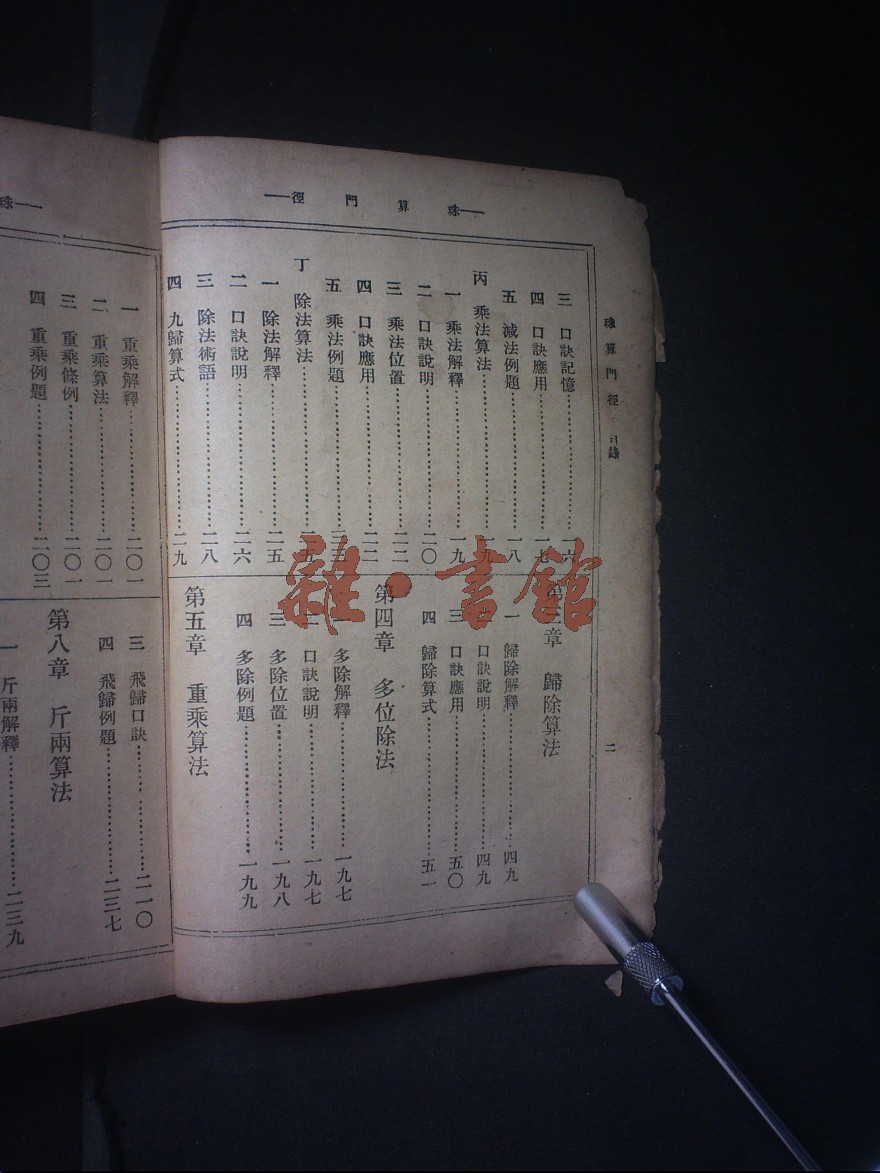 珠算門徑
珠算門徑 目錄
二
三 口訣記憶 一六
四 口訣應用 一七
五 減法例題 一八
丙 乘法算法 一九
一 乘法解釋 一九
二 口訣說明 二〇
三 乘法位置 二二
四 口訣應用 二二
五 乘法例題
丁 除法算法 二五
一 除法解釋 二五
二 口訣說明 二六
三 除法術語 二八
四 九歸算式 二九
第三章 歸除算法
一 歸除解釋 四九
二 口訣說明 四九
三 口訣應用 五〇
四 歸除算式 五一
第四章 多位除法
一 多除解釋 一九七
二 口訣說明 一九七
三 多除位置 一九八
四 多除例題 一九九
第五章 重乘算法
珠
一 重乘解釋 二〇一
二 重乘算法 二〇一
三 重乘條例 二〇一
四 重乘例題 二〇三
三 飛歸口訣 二一〇
四 飛歸例題 二三七
第八章 斤兩算法
一 斤兩解釋 二三九
雜·書館